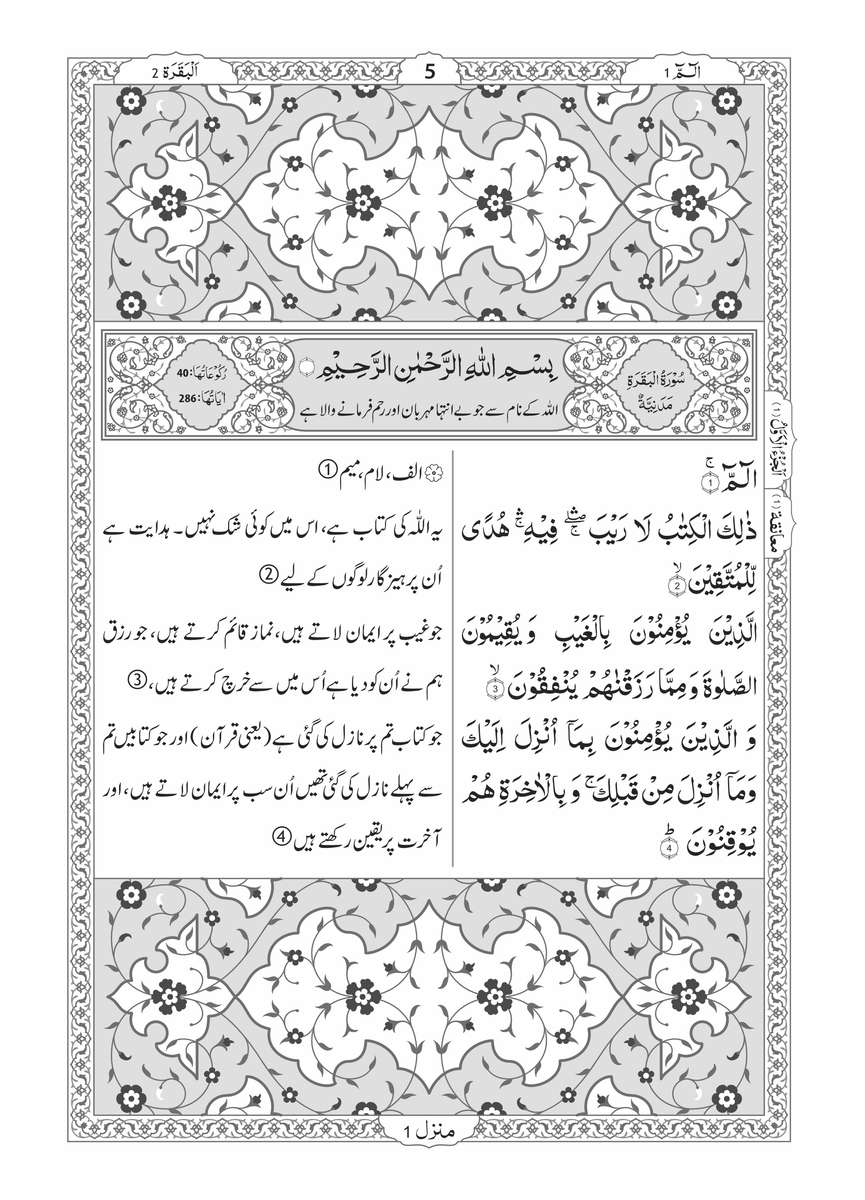 الٓمّٓ 1
5
اَلْبَقَرَة 2
سُوْرَةُ الْبَقَرَةِ
مَدَنِيَّةٌ
بِسْمِ اللّٰهِ الرَّحْمٰنِ الرَّحِيْمِ
اللہ کے نام سے جو بے انتہا مہربان اور رحم فرمانے والا ہے
رُكُوْعَاتُهَا: 40
اٰيَاتُهَا: 286
اَلْجُزْءُ الْاَوَّلُ (1)
معانقة (1)
الٓمّٓ ۚ 1
ذٰلِكَ الْكِتٰبُ لَا رَيْبَ ۛۖۚ فِيْهِ ۛۚ هُدًى
لِّلْمُتَّقِيْنَ ۙ 2
الَّذِيْنَ يُؤْمِنُوْنَ بِالْغَيْبِ وَ يُقِيْمُوْنَ
الصَّلٰوةَ وَ مِمَّا رَزَقْنٰهُمْ يُنْفِقُوْنَ ۙ 3
وَ الَّذِيْنَ يُؤْمِنُوْنَ بِمَاۤ اُنْزِلَ اِلَيْكَ
وَمَاۤ اُنْزِلَ مِنْ قَبْلِكَ ۚ وَ بِالْاٰخِرَةِ هُمْ
يُوْقِنُوْنَ ؕ 4
الف، لام، میم ①
یہ اللہ کی کتاب ہے، اس میں کوئی شک نہیں۔ ہدایت ہے
اُن پرہیزگار لوگوں کے لیے ②
جو غیب پر ایمان لاتے ہیں، نماز قائم کرتے ہیں، جو رزق
ہم نے اُن کو دیا ہے اُس میں سے خرچ کرتے ہیں، ③
جو کتاب تم پر نازل کی گئی ہے (یعنی قرآن) اور جو کتابیں تم
سے پہلے نازل کی گئی تھیں اُن سب پر ایمان لاتے ہیں، اور
آخرت پر یقین رکھتے ہیں ④
منزل 1